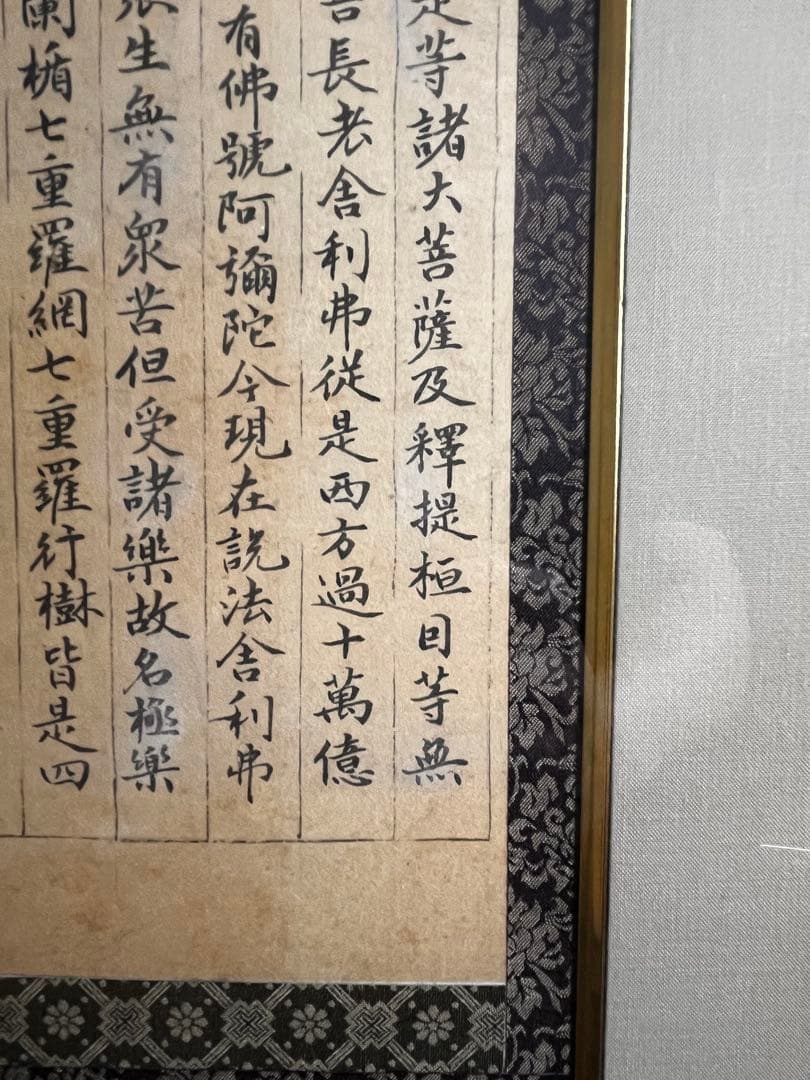 是等諸大菩薩及釋提桓因等無
長老舍利弗從是西方過十萬億
有佛號阿彌陀今現在說法舍利弗
眾生無有眾苦但受諸樂故名極樂
闌楯七重羅網七重羅行樹皆是四